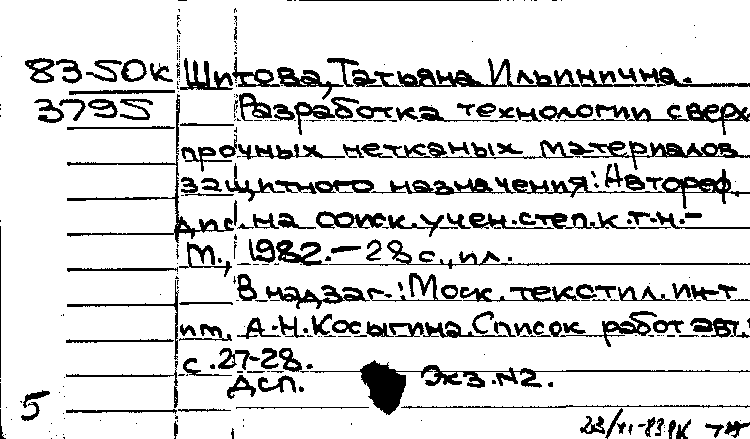 83-50к Шитова, Татьяна Ильинична.
3795 Разработка технологии сверх
прочных нетканых материалов
защитного назначения: Автореф.
дис. на соиск. учен. степ. к.т.н. –
М., 1982. – 28 с., ил.
В надзаг.: Моск. текстил. ин-т
им. А.Н. Косыгина. Список работ авт.
с. 27-28.
Дсп. Экз. N2.
5